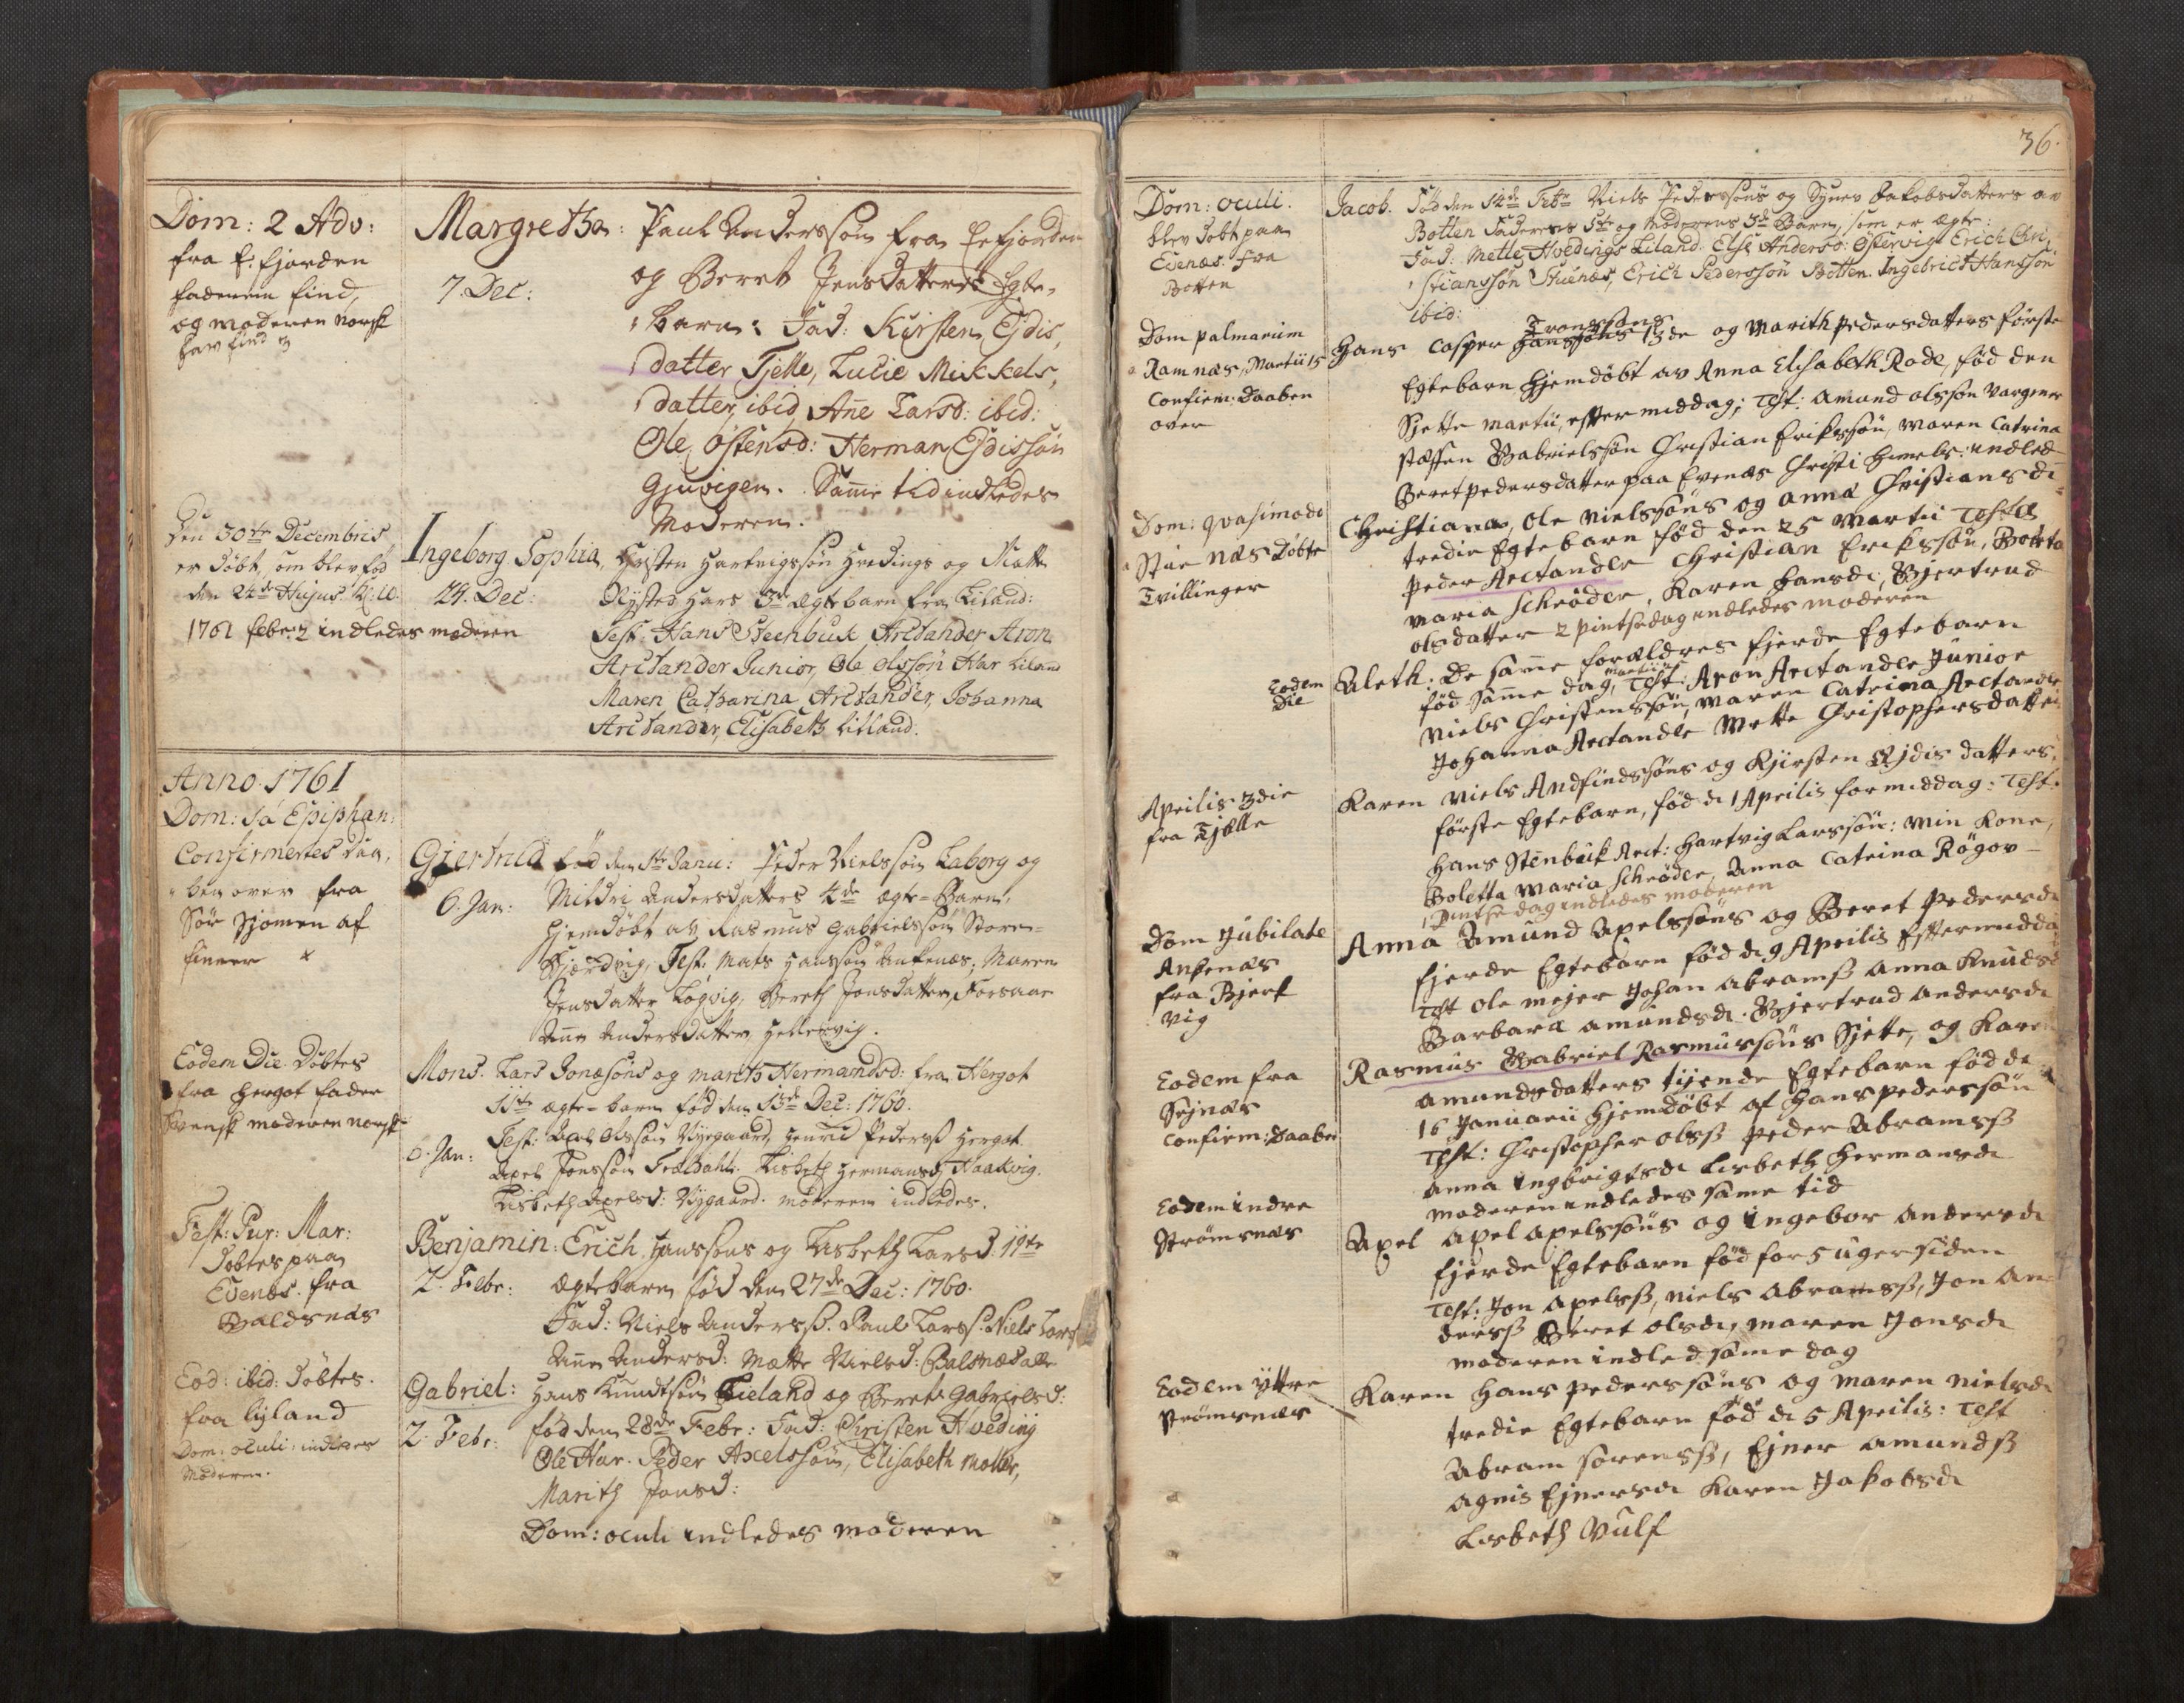 Dom: 2 Adv:
fra E. fjorden
faderen find,
og moderen norsk
Margretha:
7. Dec:
Paul Anderssøn fra Eefjorden
og Beret Jensdatters Egte-
barn: Fad: Kirsten Ejdis,
datter Tjelle, Lucie Mikkels,
datter, ibid, Añe Larsd: ibid:
Ole Østensd: Herman Ejdissøn
Gjuvigen. Sam̃e tid indledes
Moderen.
Den 30te Decembris
er døbt, som blev fød
den 24de Hujus
1761 febr: 2 indledes moderen
Ingeborg Sophia,
29. Dec:
Christen Hartvigssøn Hvedings og
3de ægte barn fra Liland:
Test: Hans Steenbuk Arctander Aron
Arctander Junior, Ole olssøn Har Liland
Maren Catharina Arctander, Johanna
Arctander, Elisabeth Litland.
Anno 1761
Dom: 1a Epiphan:
Confirmertes daa,
ben over fra
Sør Sjomen af
finner x
Giertrud
6. Jan:
fød den 1te Janu: Peder Nielssøn Laborg og
Mildri Andersdatters 4de ægte-Barn,
hjemdøbt av Rasmus Gabrielssøn Store-
Test: Mats Hanssøn Ankenæs, Maren
Jensdatter Løgvig, Bereth Jonsdatter, Forsaar
Añe Andersdatter
Eodem Die Døbtes
fra Hergot fader
Svensk moderen norsk
Mons.
6. Jan:
Lars Jonæsøns og marith Hermandsd: fra Hergot
11te ægte-barn fød den 13de Dec: 1760.
Test: Axel Olssøn Nygaard, Henrid Pederss Hergot
Axel Jonssøn Lisbeth Hermansd: Haakvig.
Lisbeth Axelsd: Nygaard. moderen indledes.
Fest: Pur: Mar:
Døbtes paa
Evenæs. fra
Baldsnæs
Benjamin:
2. Febr:
Erich Hanssøns og Lisbeth Larsd: 11te
ægtebarn fød den 27de Dec: 1760.
Fad: Niels Anderss. Paul Larss. Niels Larss
Añe Andersd: Mette Nielsd: Balsnæs alle
Eod: ibid: døbtes.
fra liland
Dom: oculi: indledes
Moderen.
Gabriel:
2. Febr:
Hans Knudtsøn Lieland og Bereth Gabrielsd:
fød den 28de Febr: Fad: Christen Hveding
Ole Har. Peder Axelssøn, Elisabeth Moller,
Marith Jonsd:
Dom: oculi indledes moderen
36.
Dom: oculi.
blev døbt paa
Evenæs. fra
Botten
Jacob. Fød den 14de Febr Niels Pederssøns og Synev Jakobsdatters av
Botten Faderens 5te og Moderens 3de Barn, som er ægte:
Fad: Mette Hvedings Liland. Else Andersd: Østervig. Erich Chri,
stianssøn Stuenæs, Erich Pederssøn Botten. Ingebrict Hanssøn
ibid:
Dom palmarum
Ramnæs, Martii 15
Confirm: Daaben
over
Hans Casper Hanssøns Tronssøns 3de og Marith Pedersdatters første
Egtebarn hjemdøbt av Anna Elisabeth Rode, fød den
Sjette martii, efter middag; Test: Amund olssøn Vargener
Staffen Gabrielssøn Christian Erikssøn, Maren Catrina
Beret pedersdatter paa Evenæs Christi himels: indled
Dom: Qvasimodo
Stuenæs Døbte
Tvillinger
Christiana, Ole Nielssøns og Anna Christiansd:
tredie Egtebarn fød den 25 Martii Testes
Peder Arctander Christian Erikssøn, Boletta
Maria Schrøder, Karen Hansd:, Gjertrud
olsdatter 2 pintsedag indledes moderen
Eodem
die
Aleth: De sam̃e forældres fjerde Egtebarn
fød Sam̃e dag, martii Test: Aron Arctander Junior
Niels Christenssøn, Maren Catrina Arctander
Johanna Arctander Mette Christophersdatter
Aprilis 3die
fra Tjælle
Karen Niels Andfindssøns og Kjirsten Ejdis datters,
første Egtebarn, fød d: 1 Aprilis formiddag: Test:
Hans Stenbuk Arct: Hartvig Larssøn: Min Kone,
Boletta Maria Schrøder, Anna Catrina Røgov
1 Pintsedag indledes moderen
Dom Jubilate
Ankenæs
fra Bjerk
vig
Anna Amund Apelssøns og Beret Pedersd:
fjerde Egtebarn fød d. 9 Aprilis Eftermiddag
Test Ole Mejer Johan Abramss Anna Knudsd
Barbara Amundsd. Gjertrud Andersd:
Eodem fra
Sejnæs
Confirm: Daaben
Rasmus Gabriel Rasmussøns Sjette, og Karen
Amundsdatters tijende Egtebarn fød de
16 Januarii hjemdøbt af Hans Pederssøn
Test: Christopher olss Peder Abramss
Anna Ingbrigtsd: Lisbeth Hermansd:
moderen indledes sam̃e tid
Eodem indre
Strømsnæs
Axel Apel Apelssøns og Ingebor Andersd:
fjerde Egtebarn fød for 5 uger siden
Test: Jon Apelss, Niels Abramss, Jon An-
derss Beret olsd:, Maren Jonsd:
moderen indled: sam̃e dag
Eodem yttre
Strømsnæs
Karen Hans Pederssøns og Maren Nielsd:
tredie Egtebarn fød d: 5 Aprilis: Test
Abram Sørenss, Ejner Amundss
Agnis Ejnersd: Karen Jakobsd:
Lisbeth Vulf